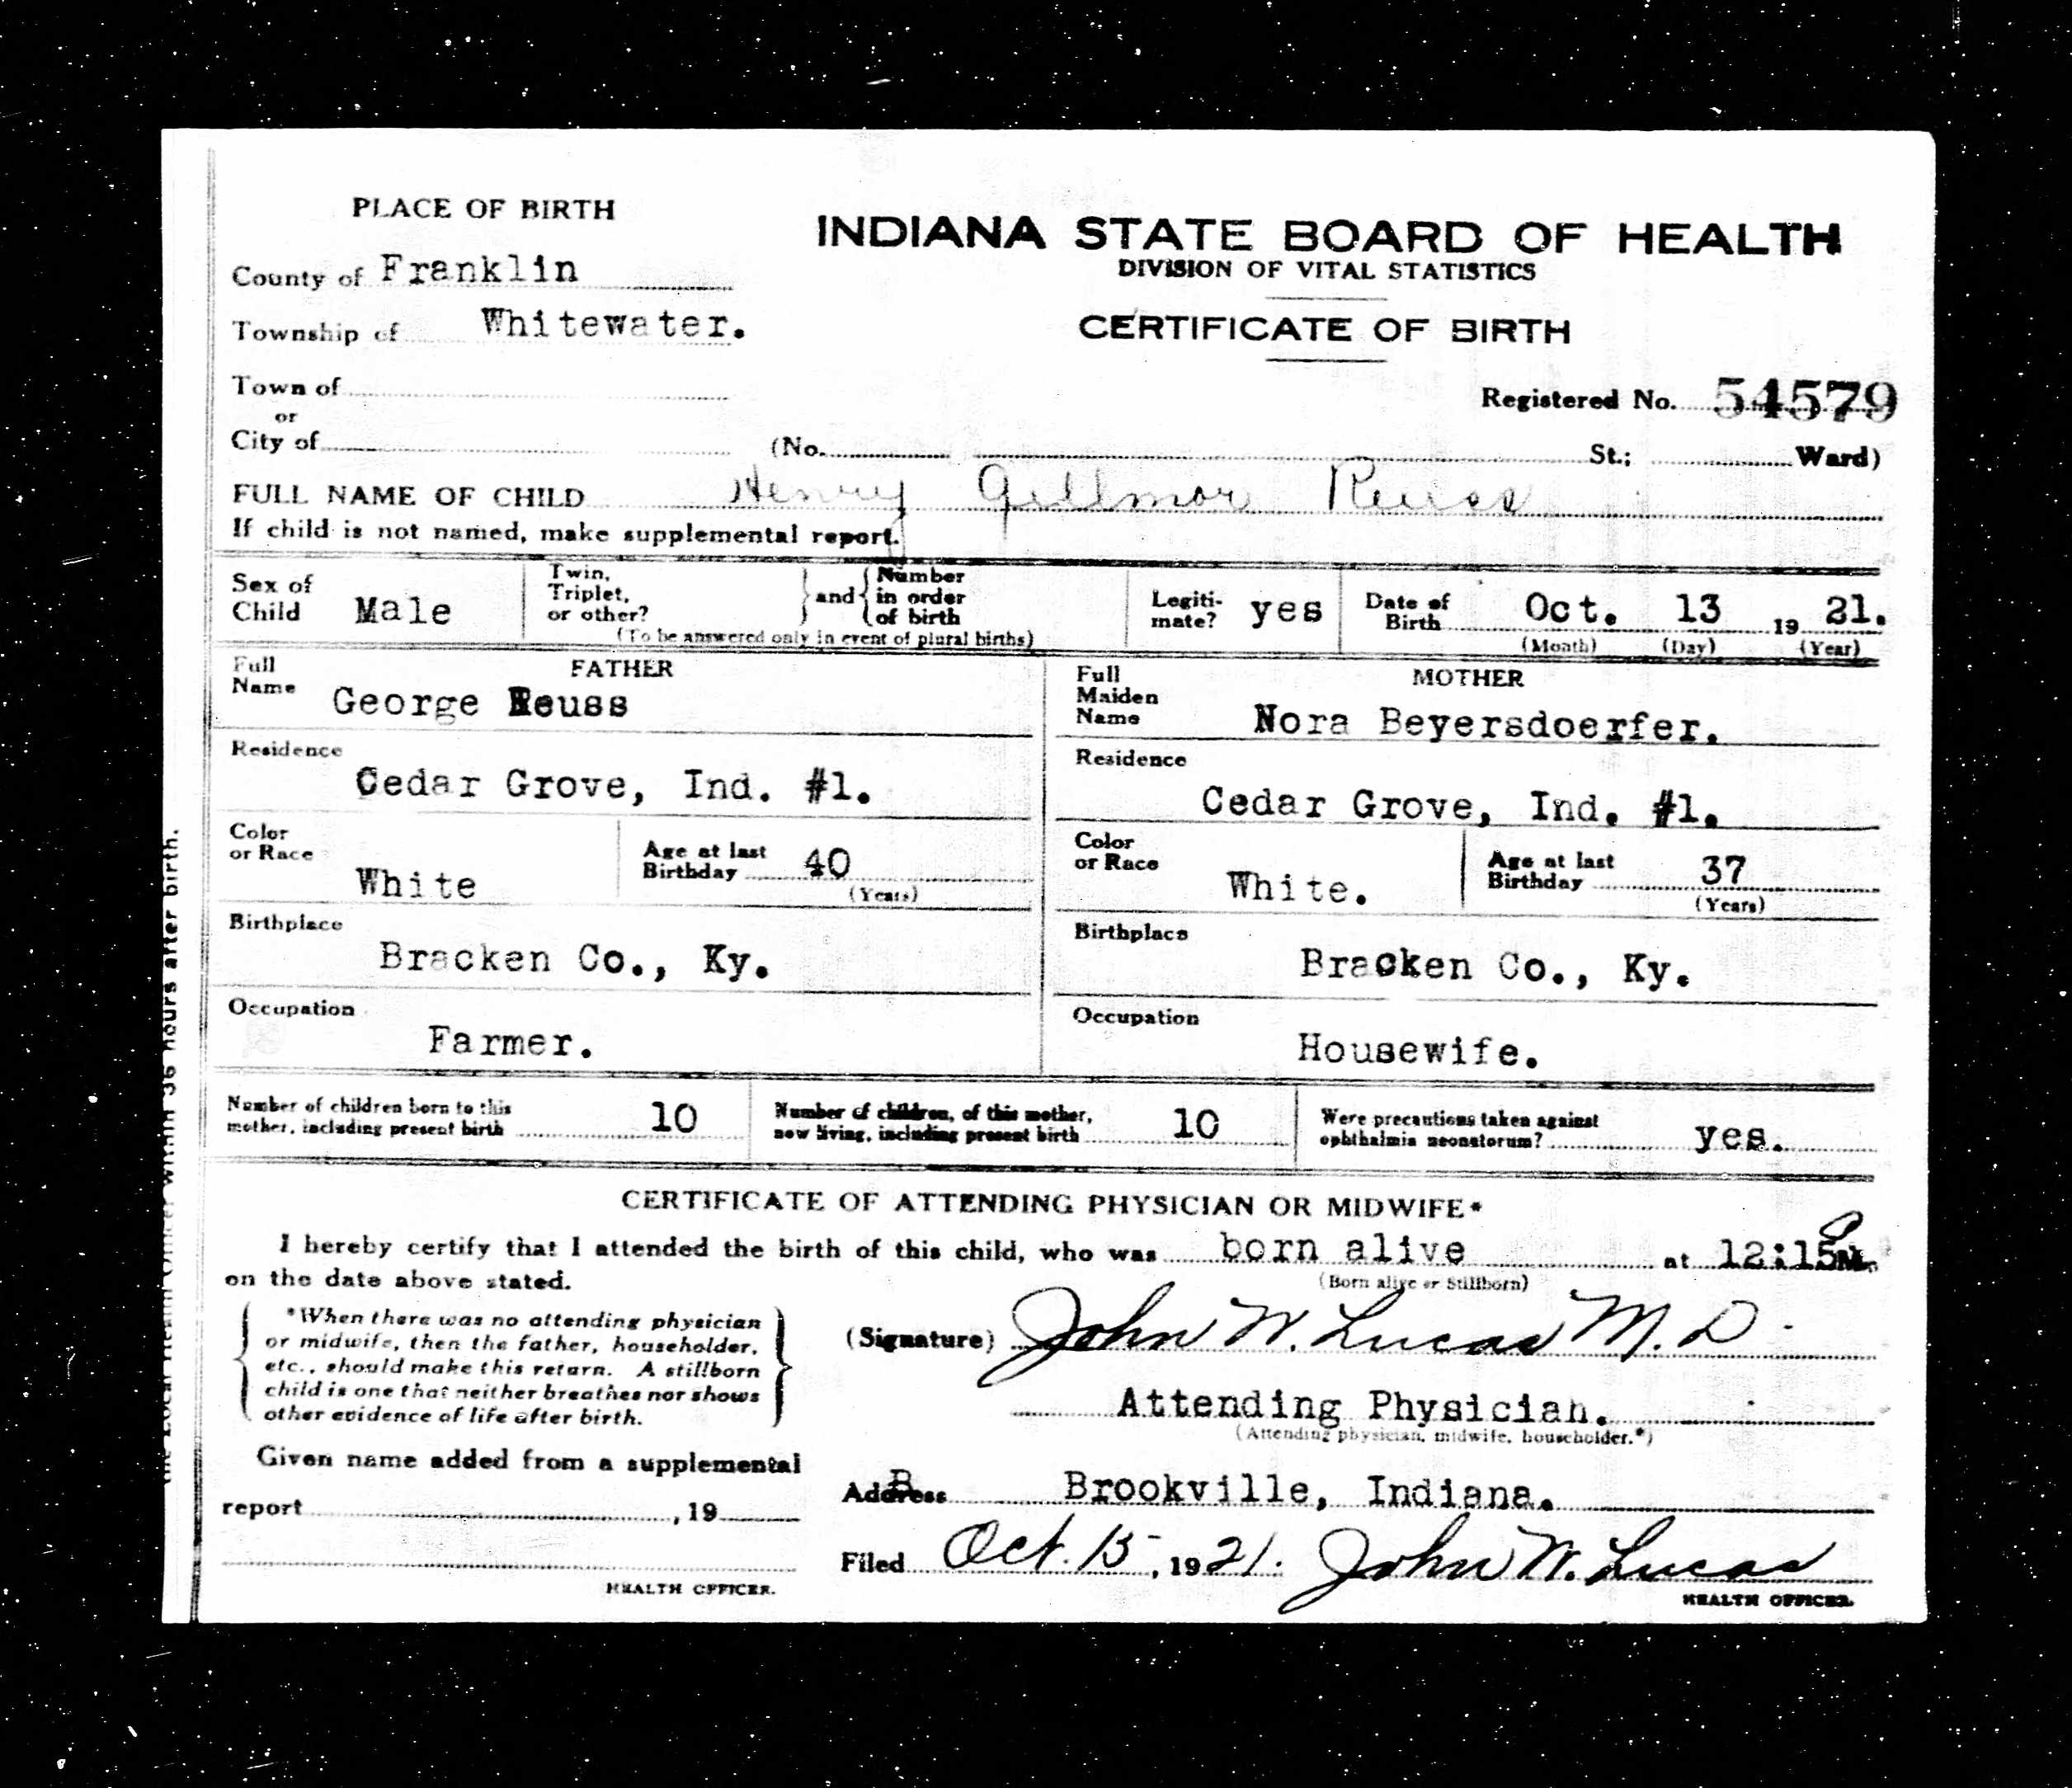 PLACE OF BIRTH
County of Franklin
Township of Whitewater.
Town of
or
City of
INDIANA STATE BOARD OF HEALTH
DIVISION OF VITAL STATISTICS
CERTIFICATE OF BIRTH
Registered No. 54579
(No. St.; Ward)
FULL NAME OF CHILD Henry Gillmor Reuss
If child is not named, make supplemental report.
Sex of Child Male
Twin, Triplet, or other? and Number in order of birth
(To be answered only in event of plural births)
Legiti-mate? yes
Date of Birth Oct. 13 19 21.
(Month) (Day) (Year)
FATHER
Full Name George Reuss
Residence
Cedar Grove, Ind. #1.
Color or Race White
Age at last Birthday 40
(Years)
Birthplace
Bracken Co., Ky.
Occupation
Farmer.
MOTHER
Full Maiden Name Nora Beyersdoerfer.
Residence
Cedar Grove, Ind. #1.
Color or Race White.
Age at last Birthday 37
(Years)
Birthplace
Bracken Co., Ky.
Occupation
Housewife.
Number of children born to this mother, including present birth 10
Number of children, of this mother, now living, including present birth 10
Were precautions taken against ophthalmia neonatorum? yes.
CERTIFICATE OF ATTENDING PHYSICIAN OR MIDWIFE*
I hereby certify that I attended the birth of this child, who was born alive at 12:15 P M.
(Born alive or Stillborn)
on the date above stated.
*When there was no attending physician
or midwife, then the father, householder,
etc., should make this return. A stillborn
child is one that neither breathes nor shows
other evidence of life after birth.
(Signature) John W. Lucas M.D.
Attending Physician.
(Attending physician, midwife, householder.*)
Given name added from a supplemental
report , 19
HEALTH OFFICER.
Address Brookville, Indiana.
Filed Oct. 15, 1921. John W. Lucas
HEALTH OFFICER.
the Local Health Officer within 36 hours after birth.